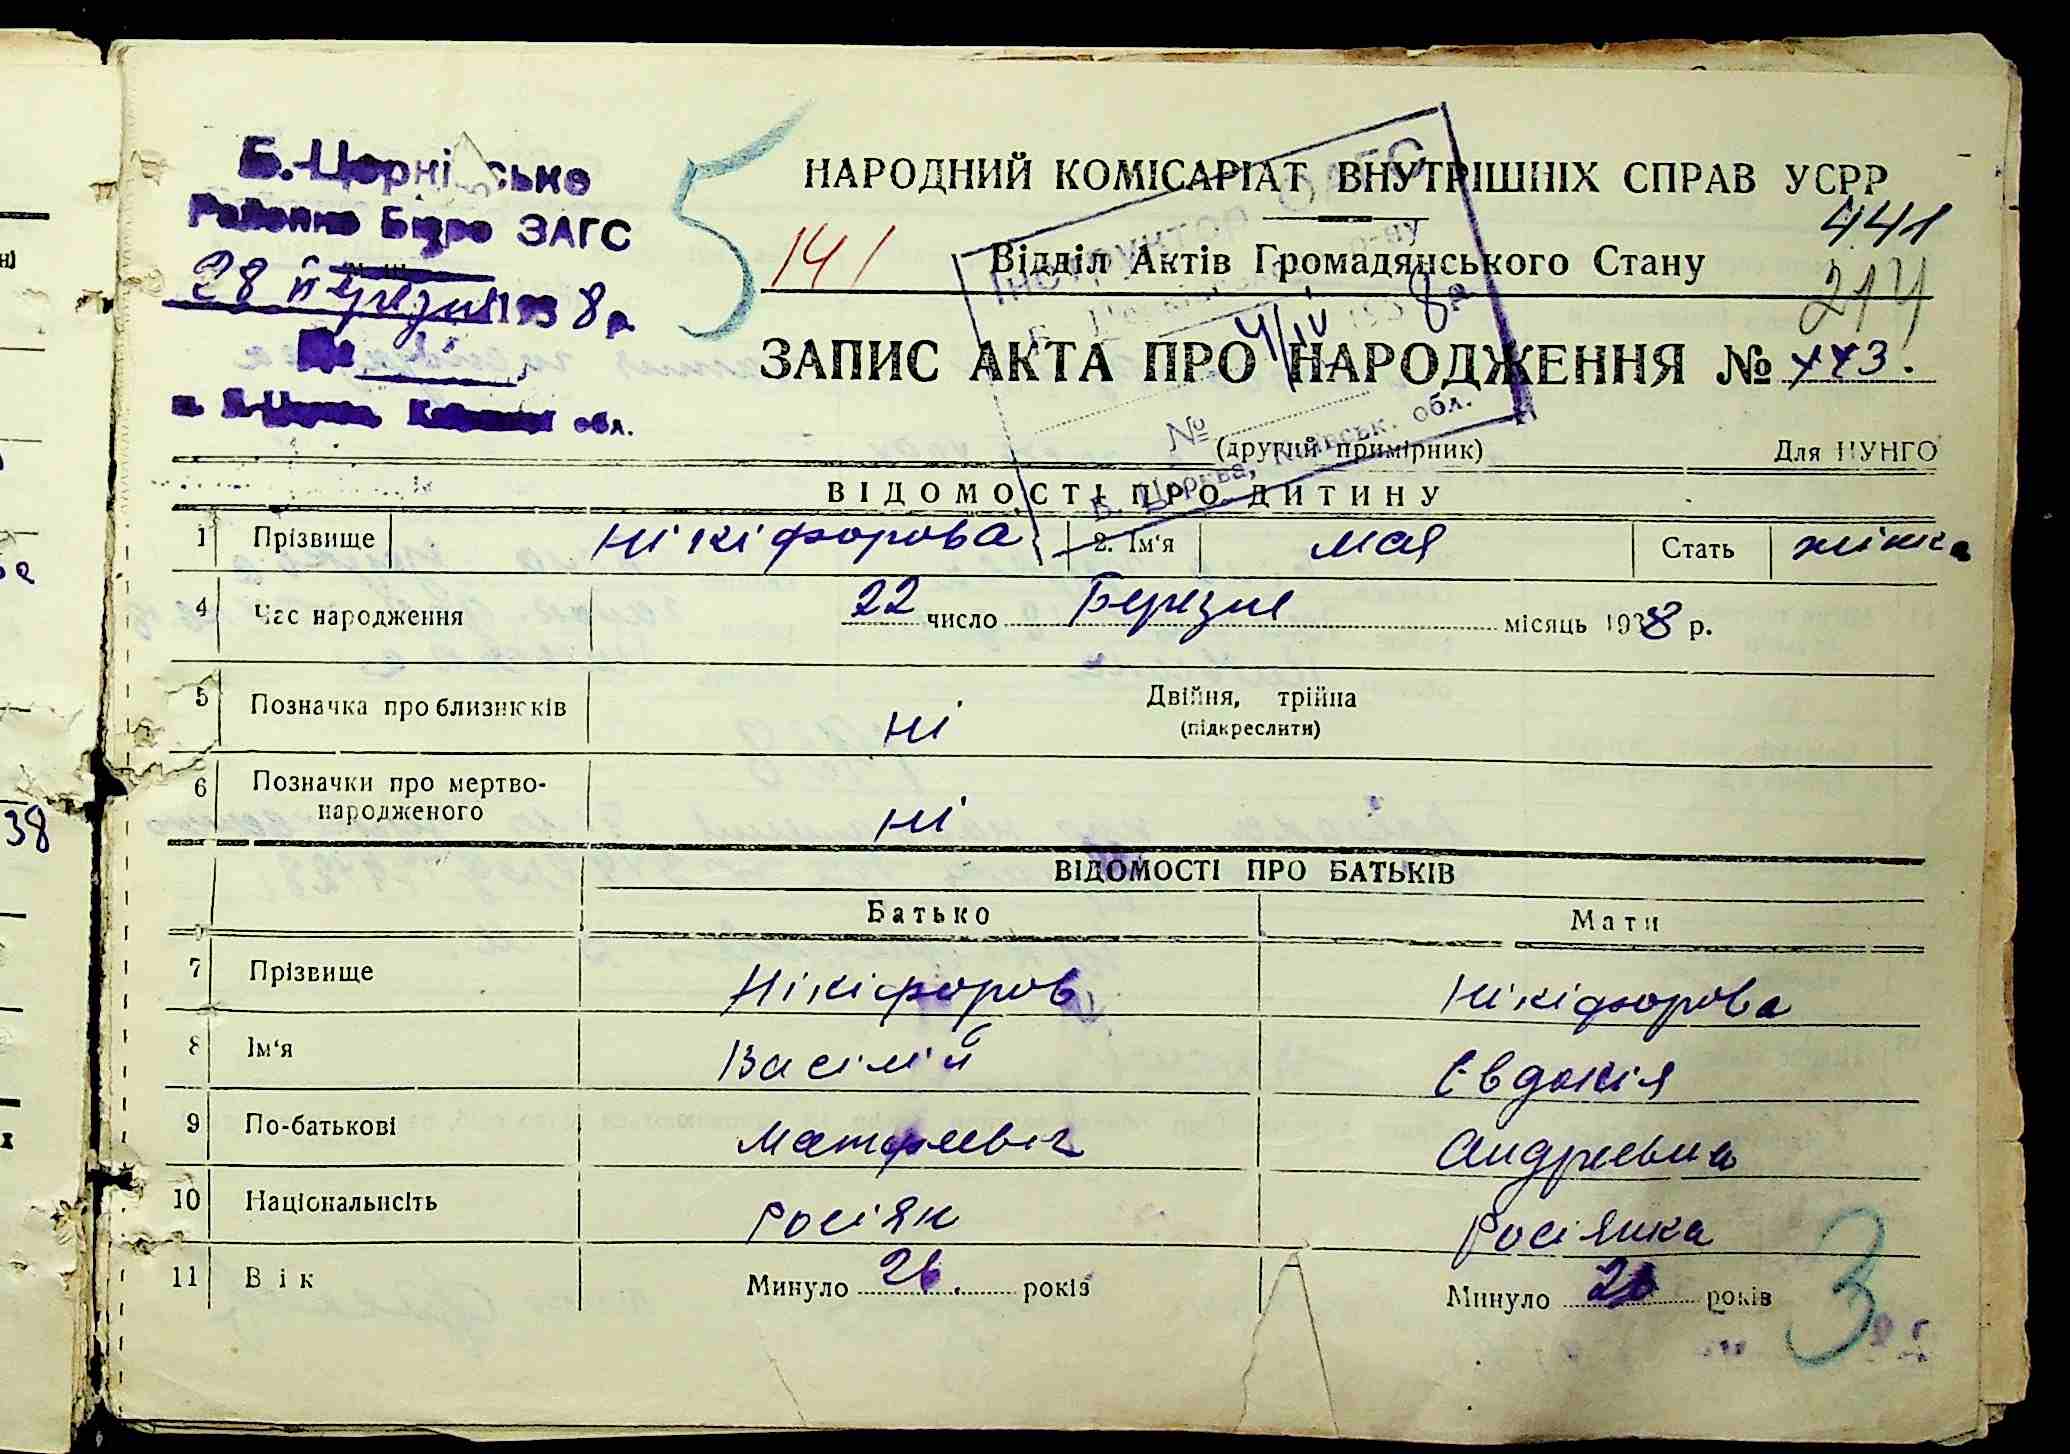 Б.-Церківське
Районне Бюро ЗАГС
28 березня 1938 р.
обл.
5
141
НАРОДНИЙ КОМІСАРІАТ ВНУТРІШНІХ СПРАВ УСРР
441
Відділ Актів Громадянського Стану
214
4/IV 1938р
ЗАПИС АКТА ПРО НАРОДЖЕННЯ № 443.
№
(другий примірник) Для ЦУНГО
Б. Церква, Київськ. обл.
ВІДОМОСТІ ПРО ДИТИНУ
1 Прізвище Нікіфорова 2. Ім'я Мая Стать жінка
4 Час народження 22 число Березня місяць 1938 р.
5 Позначка про близнюків ні Двійня, трійна
(підкреслити)
6 Позначки про мертво-
народженого ні
38
ВІДОМОСТІ ПРО БАТЬКІВ
Батько Мати
7 Прізвище Нікіфоров Нікіфорова
8 Ім'я Васілій Євдокія
9 По-батькові Матфеевіч Андреевна
10 Національність Росіян Росіянка
11 Вік Минуло 26 років Минуло років
3